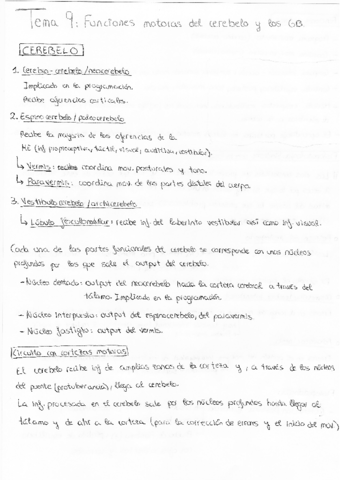 Tema 9: Funciones motoras del cerebelo y los GB
CEREBELO
1. Cerebro-cerebelo/neocerebelo
Implicado en la programación.
Recibe aferencias corticales.
2. Espinocerebelo/paleocerebelo
Recibe la mayoría de las aferencias de la
ME (inf propioceptiva, táctil, visual, auditiva, vestibular).
↳ Vermis: coordina mov. posturales y tono.
↳ Paravermis: coordina mov. de las partes distales del cuerpo.
3. Vestibulocerebelo/archicerebelo
↳ Lóbulo floculonodular: recibe inf. del laberinto vestibular así como inf visual.
Cada una de las partes funcionales del cerebelo se corresponde con unos núcleos
profundos por los que sale el output del cerebelo.
- Núcleo dentado: output del neocerebelo hacia la corteza cerebral a través del
tálamo. Implicado en la programación.
- Núcleo Interpuesto: output del espinocerebelo, del paravermis.
- Núcleo fastigio: output del vermis.
Circuito con cortezas motoras
El cerebelo recibe inf de amplias zonas de la corteza y, a través de los núcleos
del puente (protuberancia), llega al cerebelo.
La inf. procesada en el cerebelo sale por los núcleos profundos hasta llegar al
tálamo y de ahí a la corteza (para la corrección de errores y el inicio del mov)